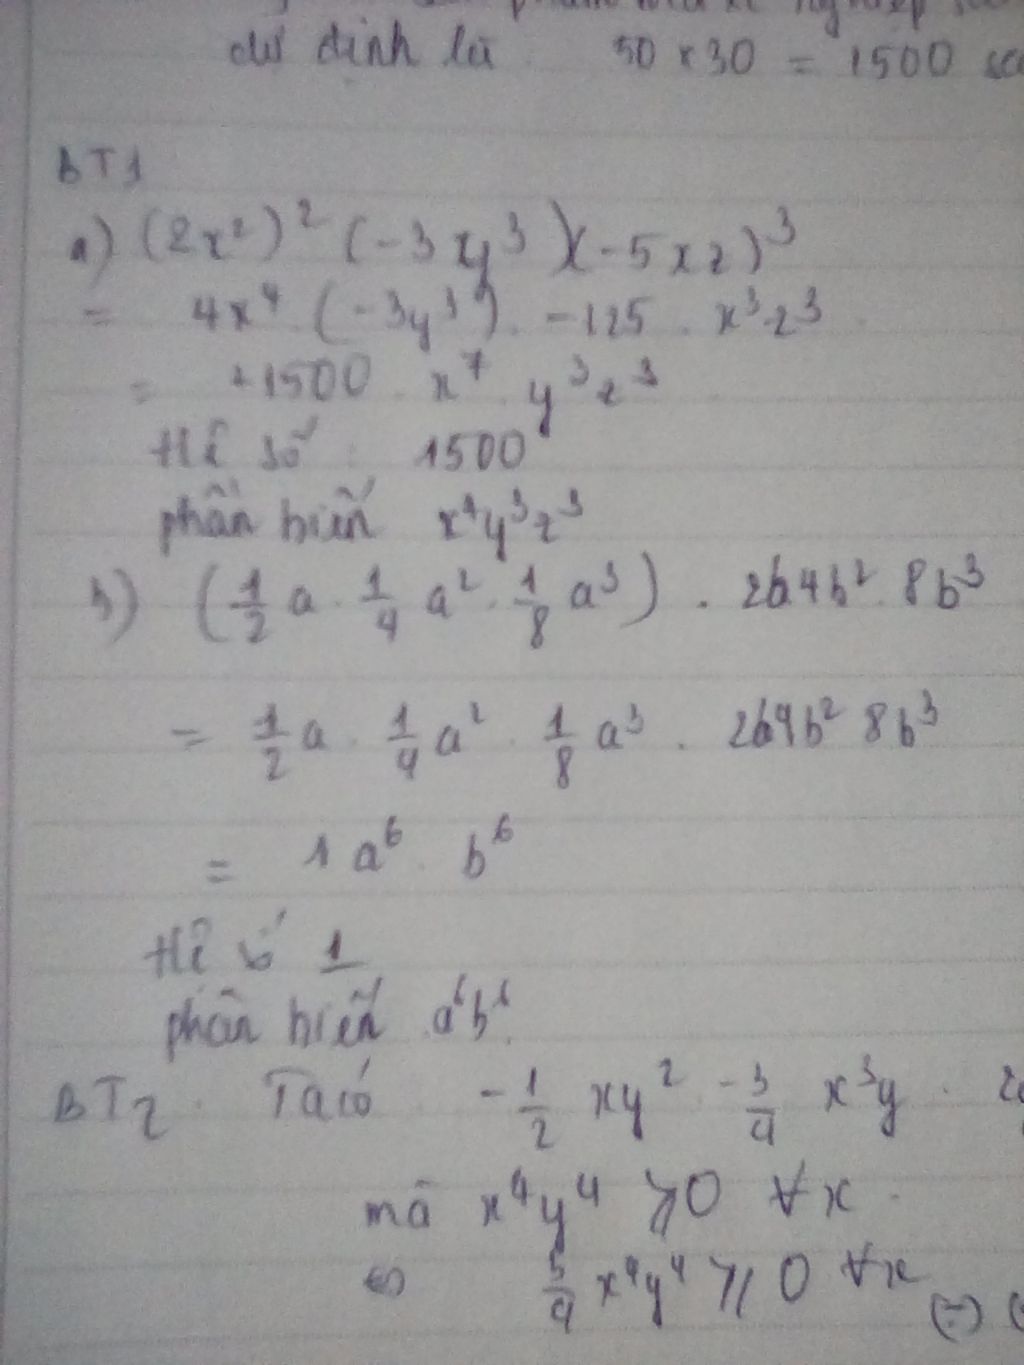 dự định là 50 x 30 = 1500
BT1
a) (2x²)² (-3y³)(-5xz)³
= 4x⁴ . (-3y³) . -125 . x³z³
= +1500 . x⁷ y³z³
Hệ số : 1500
phần biến x⁴y³z³
b) (1/2 a . 1/4 a² . 1/8 a³) . 2b4b² 8b³
= 1/2 a . 1/4 a² . 1/8 a³ . 2b4b² 8b³
= 1 a⁶ . b⁶
Hệ số 1
phần biến a⁶b⁶.
BT2. Ta có -1/2 xy² -3/4 x³y .
mà x⁴y⁴ ⩾0 ∀x .
⇔ x⁴y⁴ ⩾ 0 ∀x